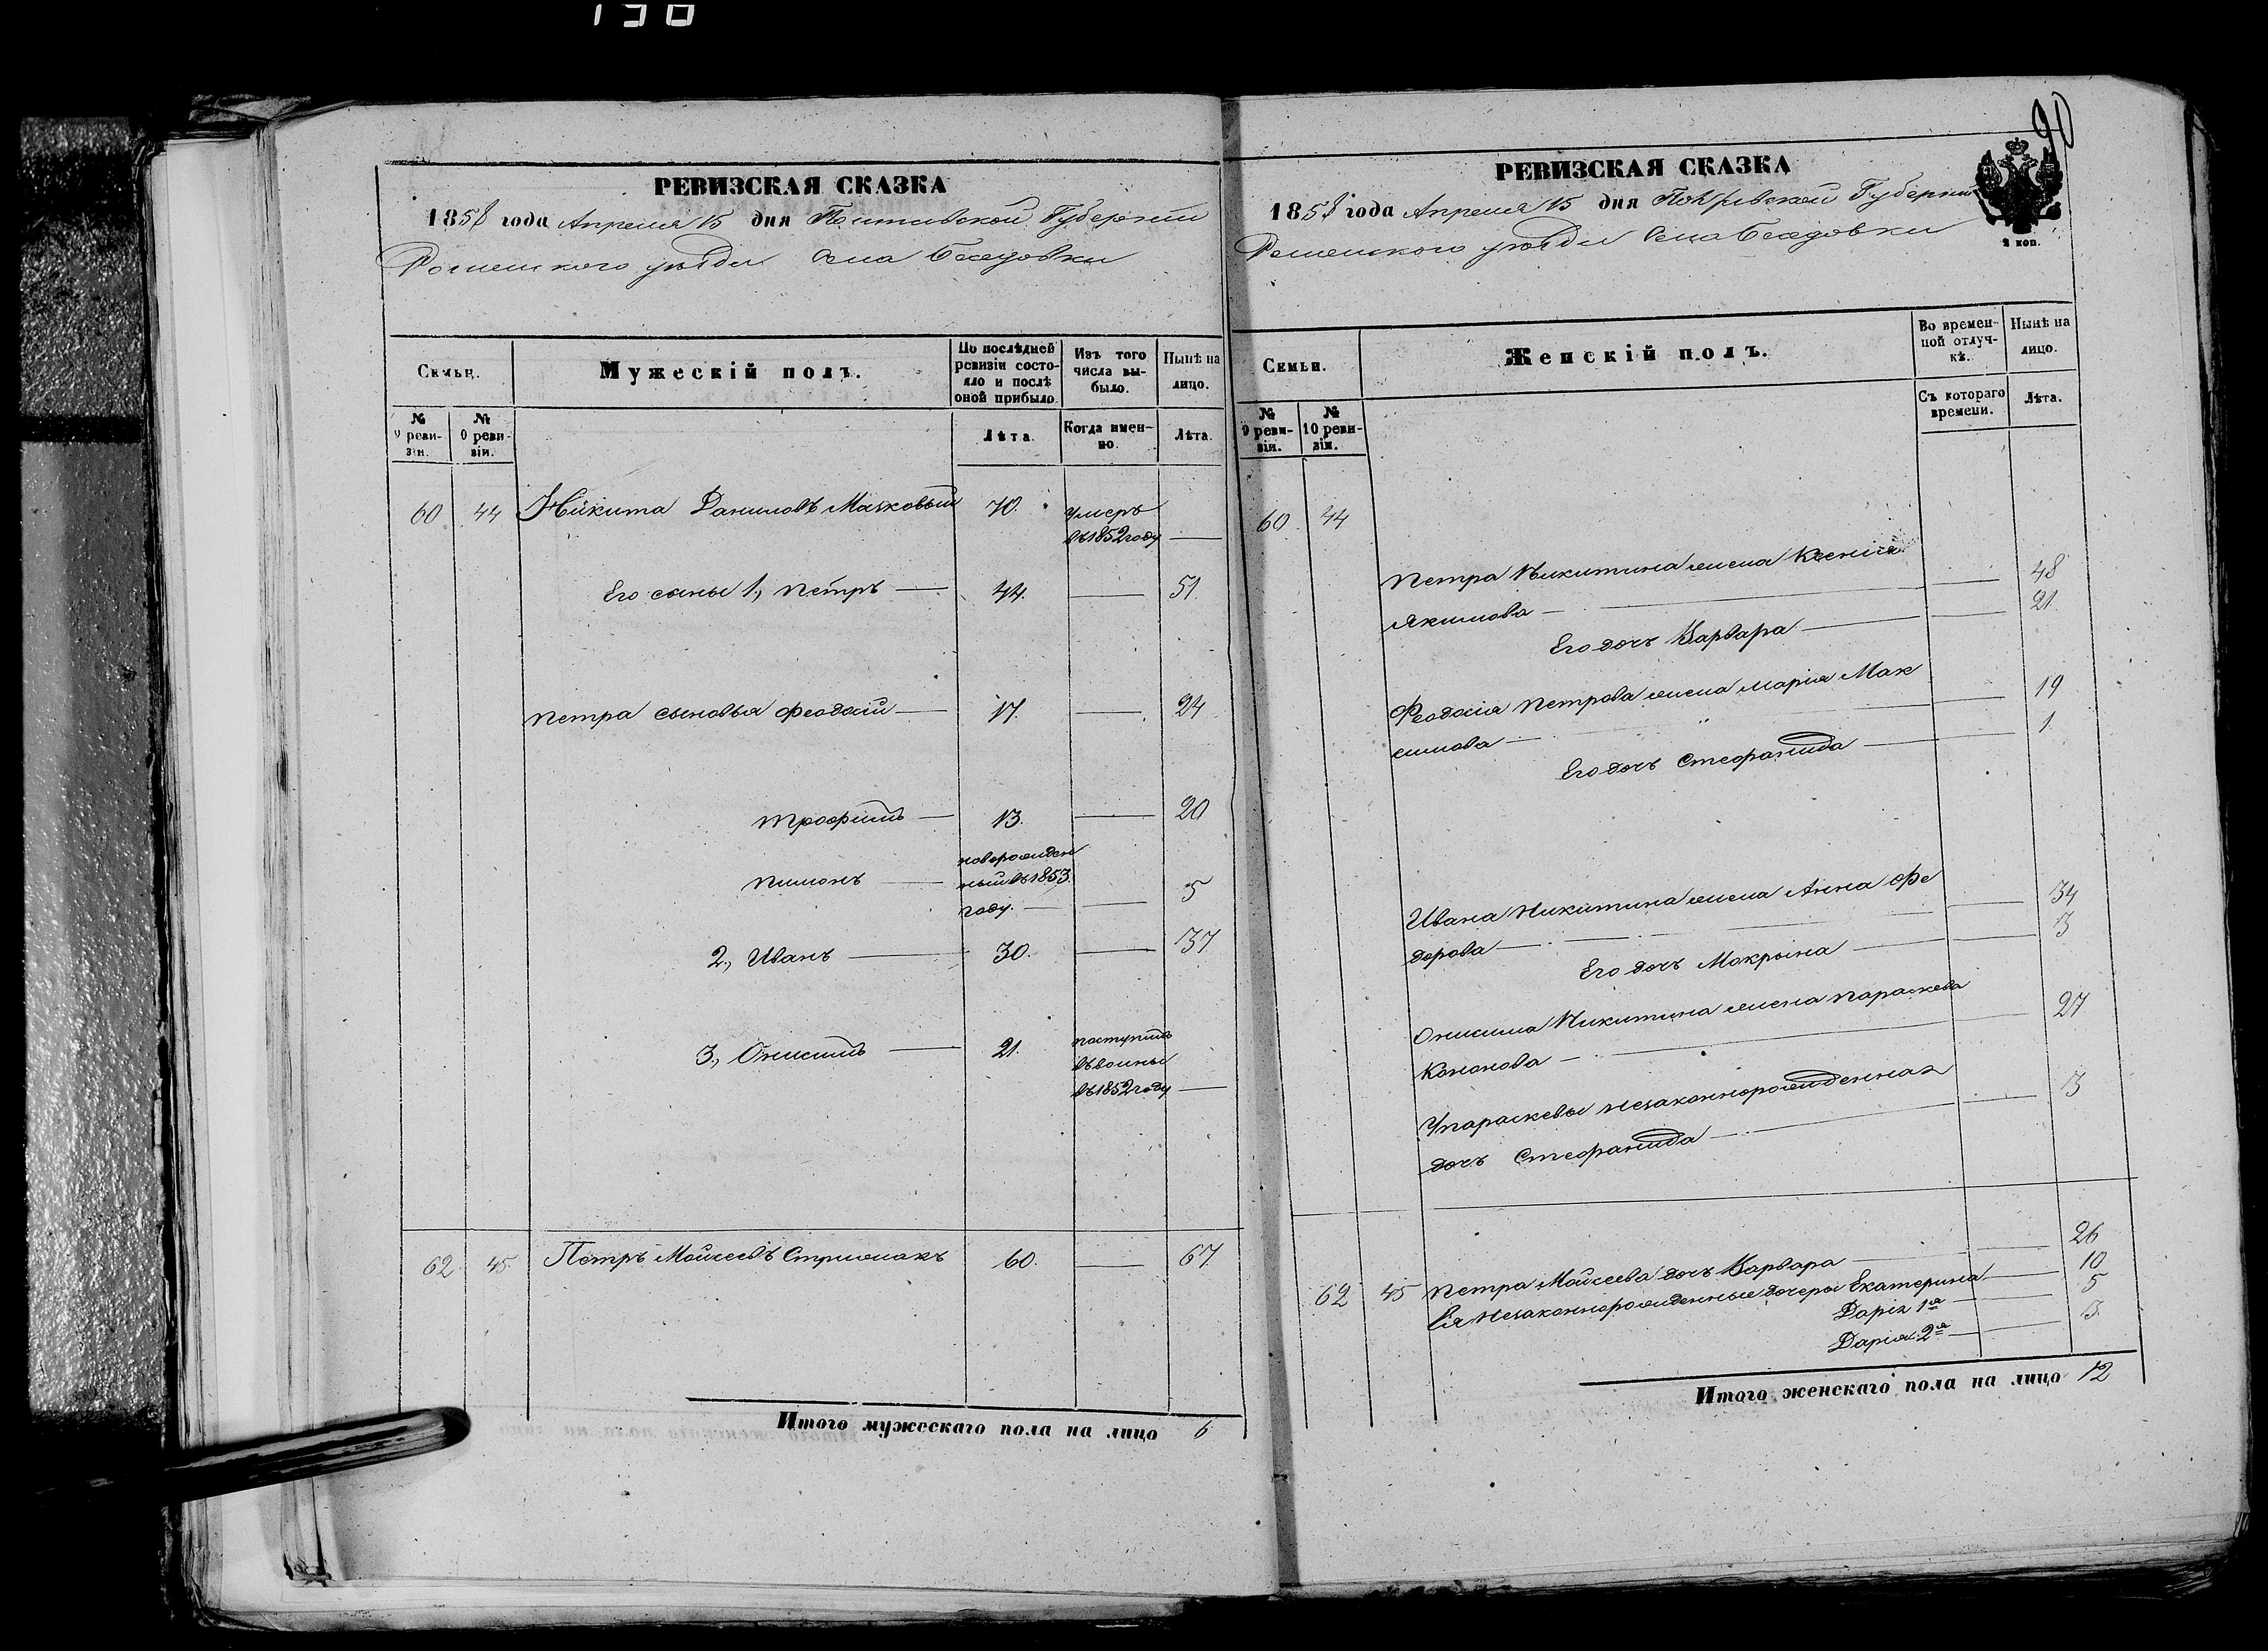 130
РЕВИЗСКАЯ СКАЗКА
1858 года Апреля 15 дня Полтавской Губернии
Роменского уѣзда Села Беседовки
Семьи.
Мужескій полъ.
По послѣдней ревизіи состояло и послѣ оной прибыло.
Изъ того числа выбыло.
Нынѣ на лицо.
№ 9 ревизіи.
№ 10 ревизіи.
Лѣта.
Когда именно.
Лѣта.
60 44 Никита Даниловъ Маяковый 70. умеръ
въ 1852 году —
Его сыны 1., Петръ — 44. — 51.
Петра сыновья Феодосій — 17. — 24
Трофимъ — 13. — 20
новорожден
Пимонъ — ный въ 1853.
году. — — 5
2., Иванъ — 30. — 37
3., Онисимъ — 21. поступилъ
въ воины
въ 1852 году —
62 45 Петръ Мойсеевъ Стрижакъ 60. — 67
Итого мужескаго пола на лицо 6
90
РЕВИЗСКАЯ СКАЗКА
1858 года Апреля 15 дня Полтавской Губернии
Роменского уѣзда Села Беседовки
2 коп.
Семьи.
Женскій полъ.
Во временной отлучкѣ.
Нынѣ на лицо.
№ 9 ревизіи.
№ 10 ревизіи.
Съ котораго времени.
Лѣта.
60. 44
Петра Никитина жена Ксенія
Якимова — — 48
Его дочь Варвара — — 21.
Феодосія Петрова жена Марія Мак
симова — — 19
Его дочь Стефанида — 1.
Ивана Никитина жена Анна Фе
дорова — — 34
Его дочь Макрына — — 3
Онисима Никитина жена Параскева
Кононова — — 27
У Параскевы незаконнорожденная
дочь Стефанида — — 3
62 45 Петра Мойсеева дочь Варвара — — 26
Ея незаконнорожденные дочеры Екатерина — 10
Дарія 1я — — 5
Дарія 2я — — 3.
Итого женскаго пола на лицо 12